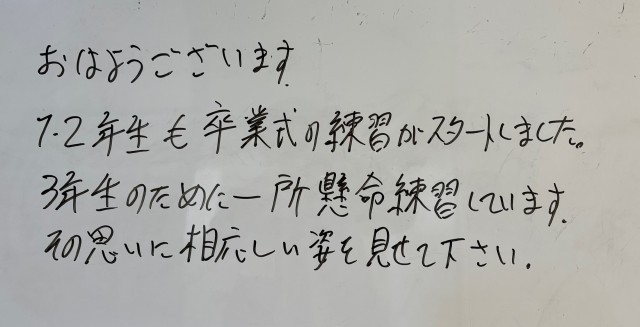 おはようございます.
1.2年生も卒業式の練習がスタートしました。
3年生のために一所懸命練習しています.
その思いに相応しい姿を見せて下さい.